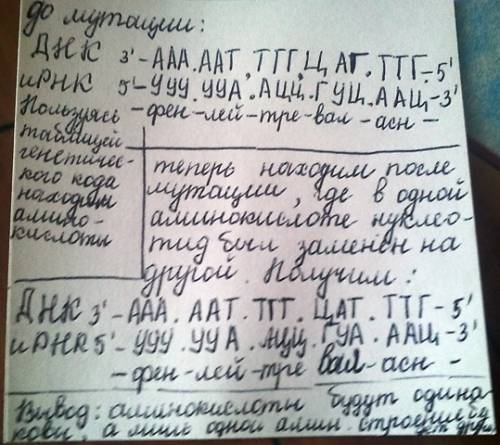 до мутации:
ДНК 3'-ААА.ААТ.ТГГ.ЦАГ.ТТГ-5'
иРНК 5'-УУУ.УУА.АЦЦ.ГУЦ.ААЦ-3'
-фен-лей-тре-вал-асн-
Пользуясь
таблицей
генетичес-
кого кода
находим
амино-
кислоты
теперь находим после
мутации, где в одной
аминокислоте нуклео-
тид был заменен на
другой. Получим:
ДНК 3'-ААА.ААТ.ТГГ.ЦАТ.ТТГ-5'
иРНК 5'-УУУ.УУА.АЦЦ.ГУА.ААЦ-3'
-фен-лей-тре вал-асн-
Вывод: аминокислоты будут одина-
ковы, а лишь одной амин. строение